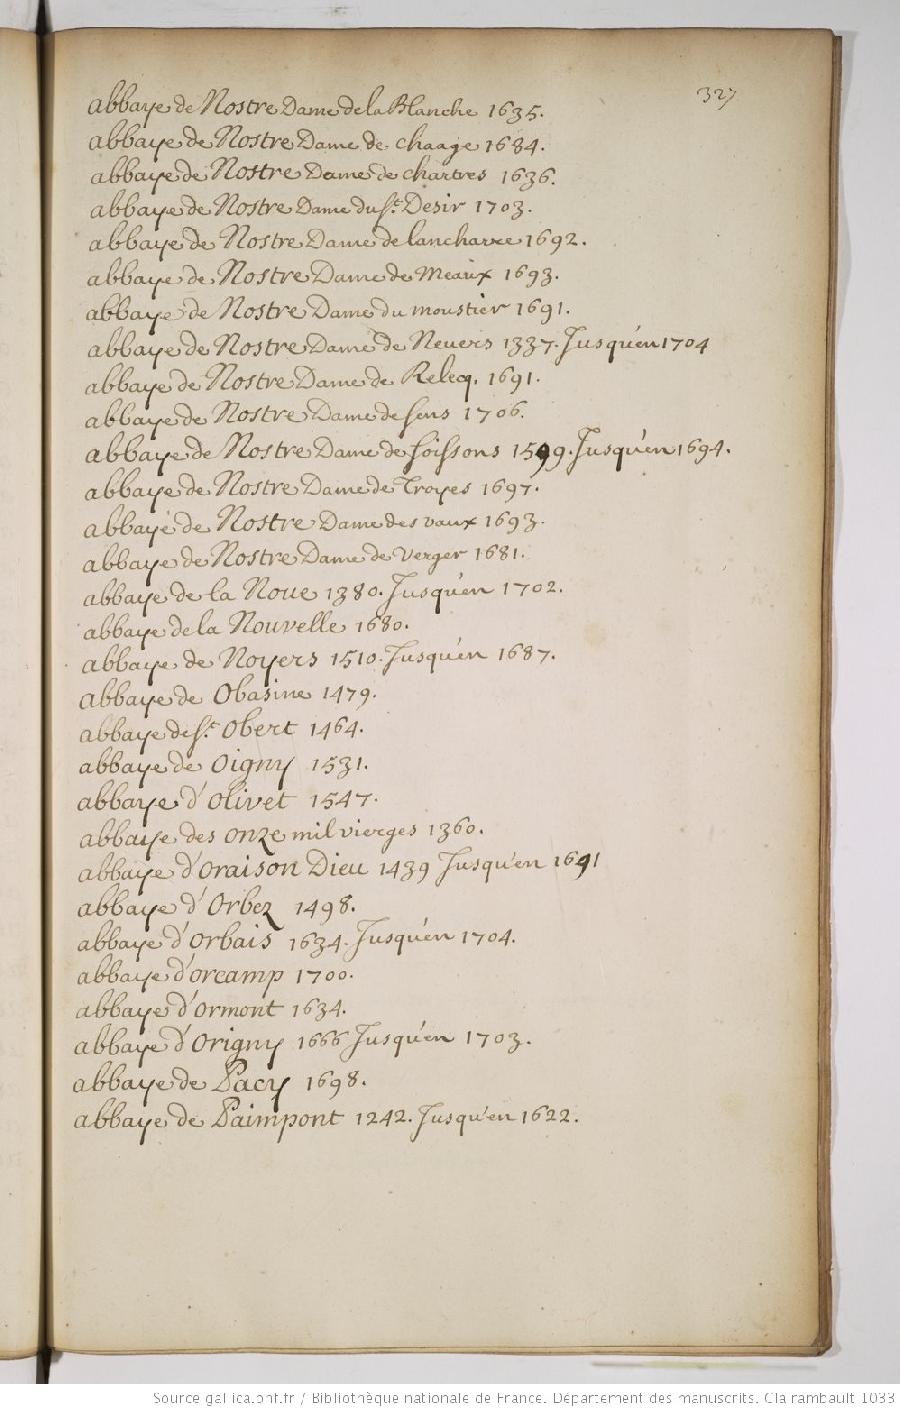 327
abbaye de Nostre Dame de la Blanche 1635.
abbaye de Nostre Dame de chaage 1684.
abbaye de Nostre Dame de chartres 1636.
abbaye de Nostre Dame du st. Desir 1703.
abbaye de Nostre Dame de lancharre 1692.
abbaye de Nostre Dame de Meaux 1693.
abbaye de Nostre Dame du moustier 1691.
abbaye de Nostre Dame de Nevers 1337. Jusqu'en 1704
abbaye de Nostre Dame de Relecq. 1691.
abbaye de Nostre Dame de sens 1706.
abbaye de Nostre Dame de soissons 1599. Jusqu'en 1694.
abbaye de Nostre Dame de Troyes 1697.
abbaye de Nostre Dame des vaux 1693.
abbaye de Nostre Dame de verger 1681.
abbaye de la Noue 1380. Jusqu'en 1702.
abbaye de la Nouvelle 1680.
abbaye de Noyers 1510. Jusqu'en 1687.
abbaye de Obasine 1479.
abbaye de st. Obert 1464.
abbaye de Oigny 1531.
abbaye d'Olivet 1547.
abbaye des onze mil vierges 1360.
abbaye d'oraison Dieu 1439 Jusqu'en 1691
abbaye d'Orbez 1498.
abbaye d'orbais 1634. Jusqu'en 1704.
abbaye d'orcamp 1700.
abbaye d'ormont 1634.
abbaye d'origny 1666 Jusqu'en 1703.
abbaye de Pacy 1698.
abbaye de Paimpont 1242. Jusqu'en 1622.
Source gallica.bnf.fr / Bibliothèque nationale de France. Département des manuscrits. Clairambault 1033